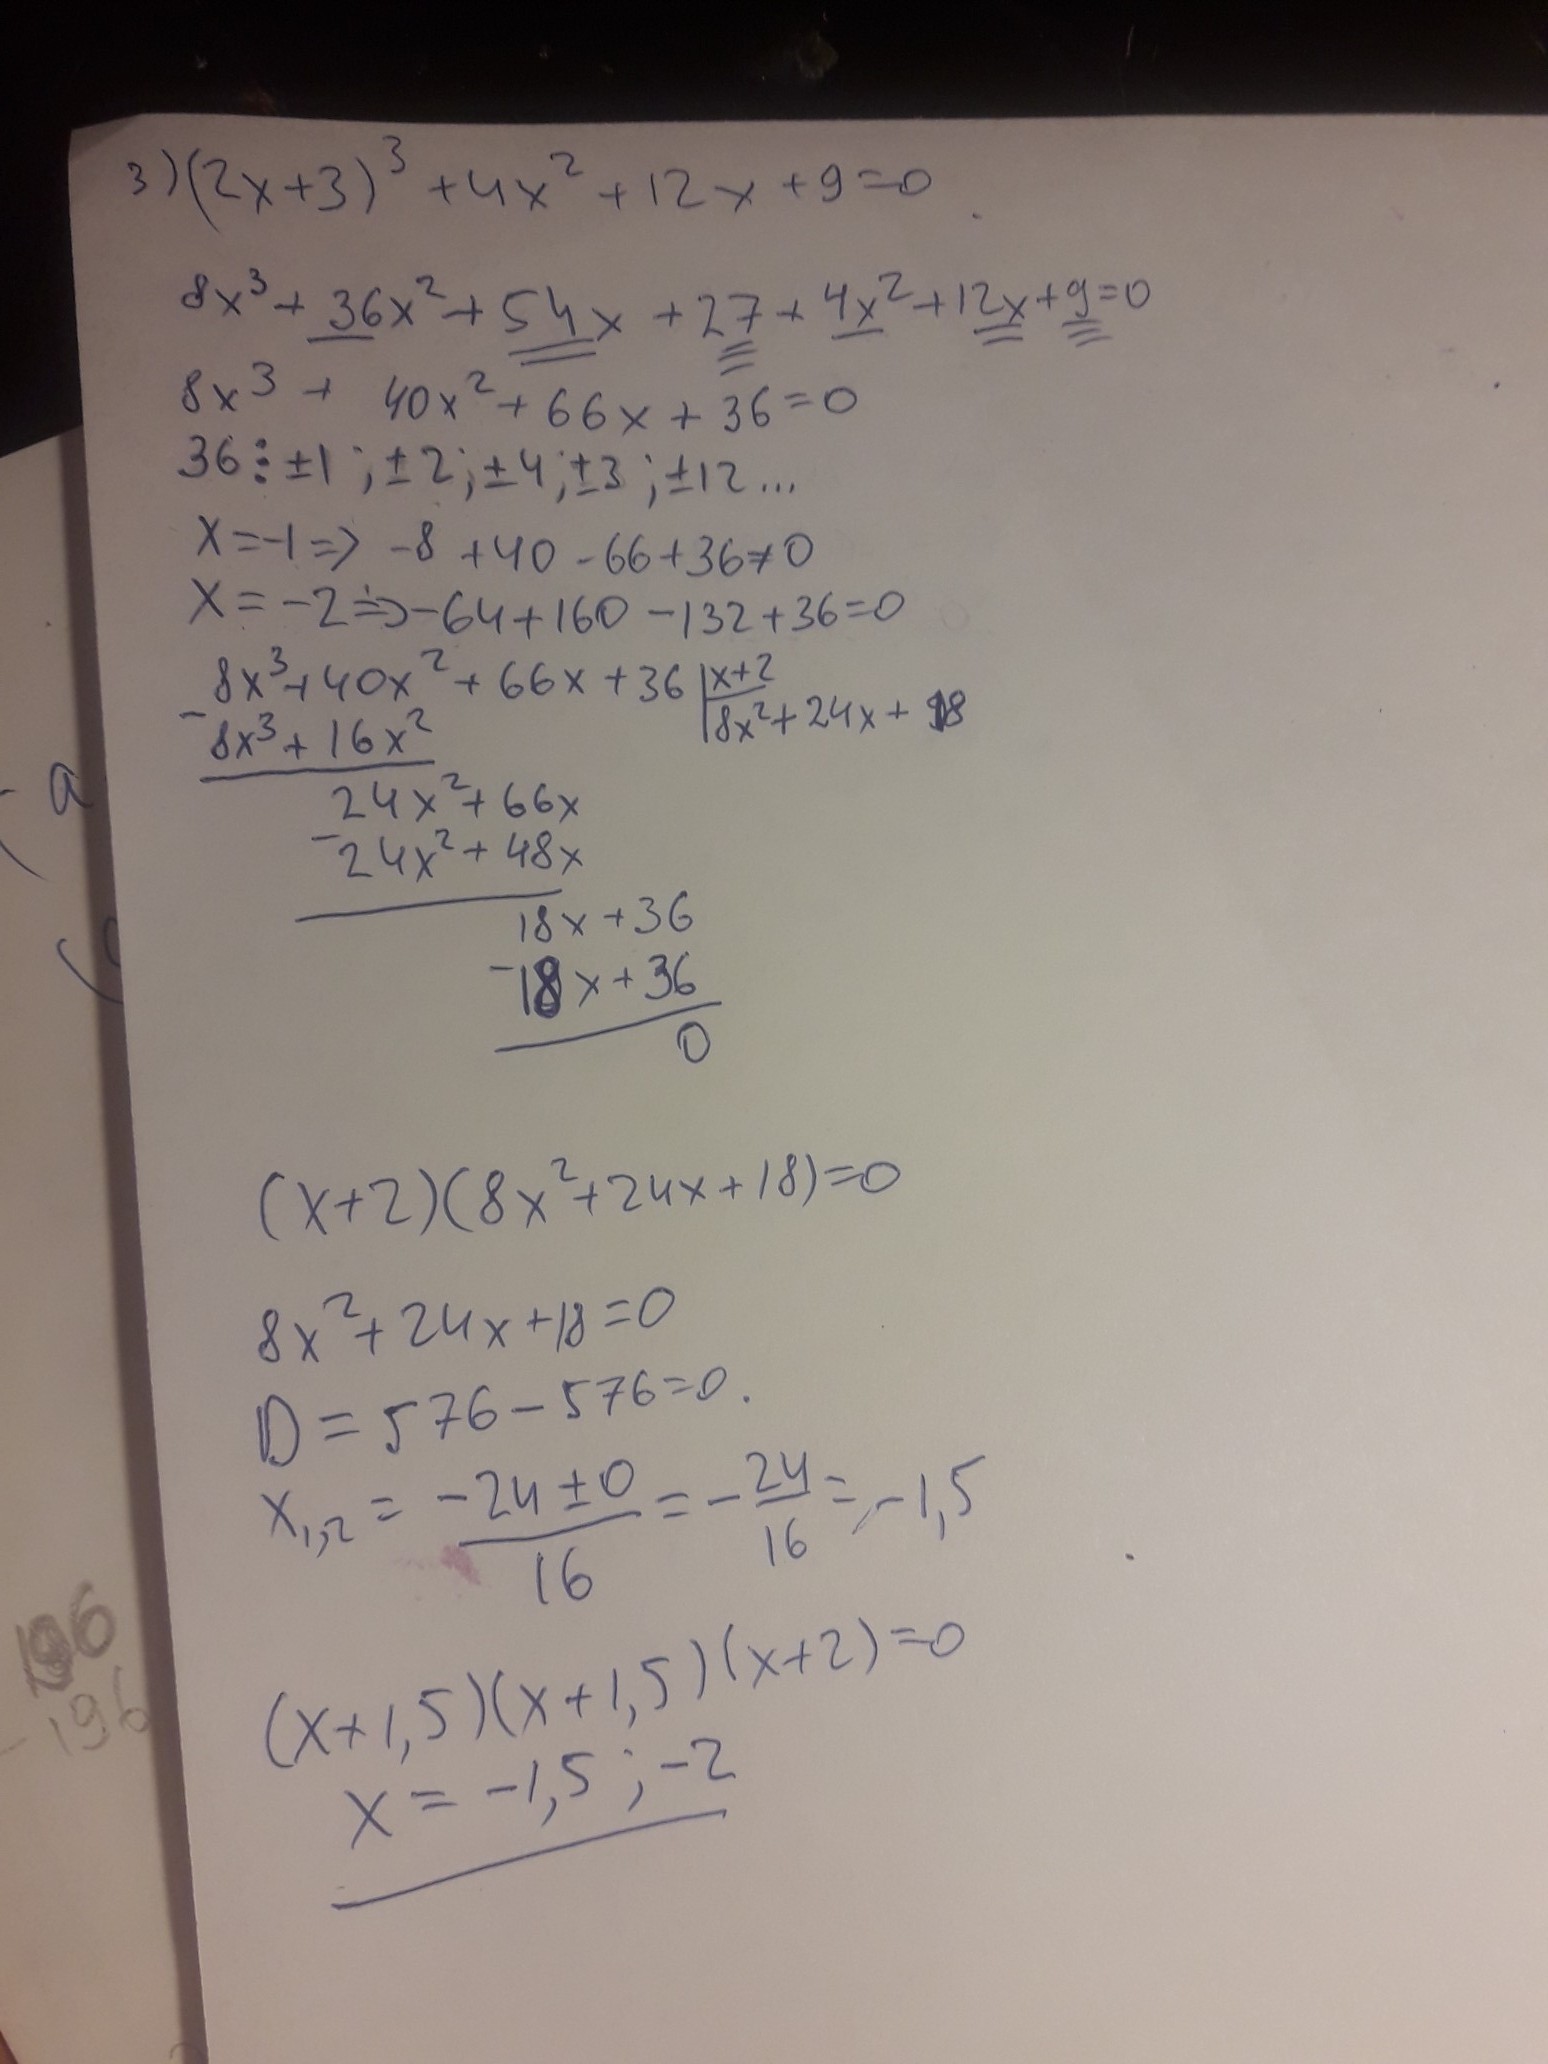 3) (2x+3)³ + 4x² + 12x + 9 = 0
8x³ + 36x² + 54x + 27 + 4x² + 12x + 9 = 0
8x³ + 40x² + 66x + 36 = 0
36 ⋮ ±1 ; ±2 ; ±4 ; ±3 ; ±12 ...
x = -1 => -8 + 40 - 66 + 36 ≠ 0
x = -2 => -64 + 160 - 132 + 36 = 0
8x³ + 40x² + 66x + 36 | x+2
- 8x³ + 16x² | 8x² + 24x + 18
24x² + 66x
- 24x² + 48x
18x + 36
- 18x + 36
0
(x+2)(8x² + 24x + 18) = 0
8x² + 24x + 18 = 0
D = 576 - 576 = 0.
x₁,₂ = (-24 ± 0)/16 = -24/16 = -1,5
(x+1,5)(x+1,5)(x+2) = 0
x = -1,5 ; -2
- a
196
- 196